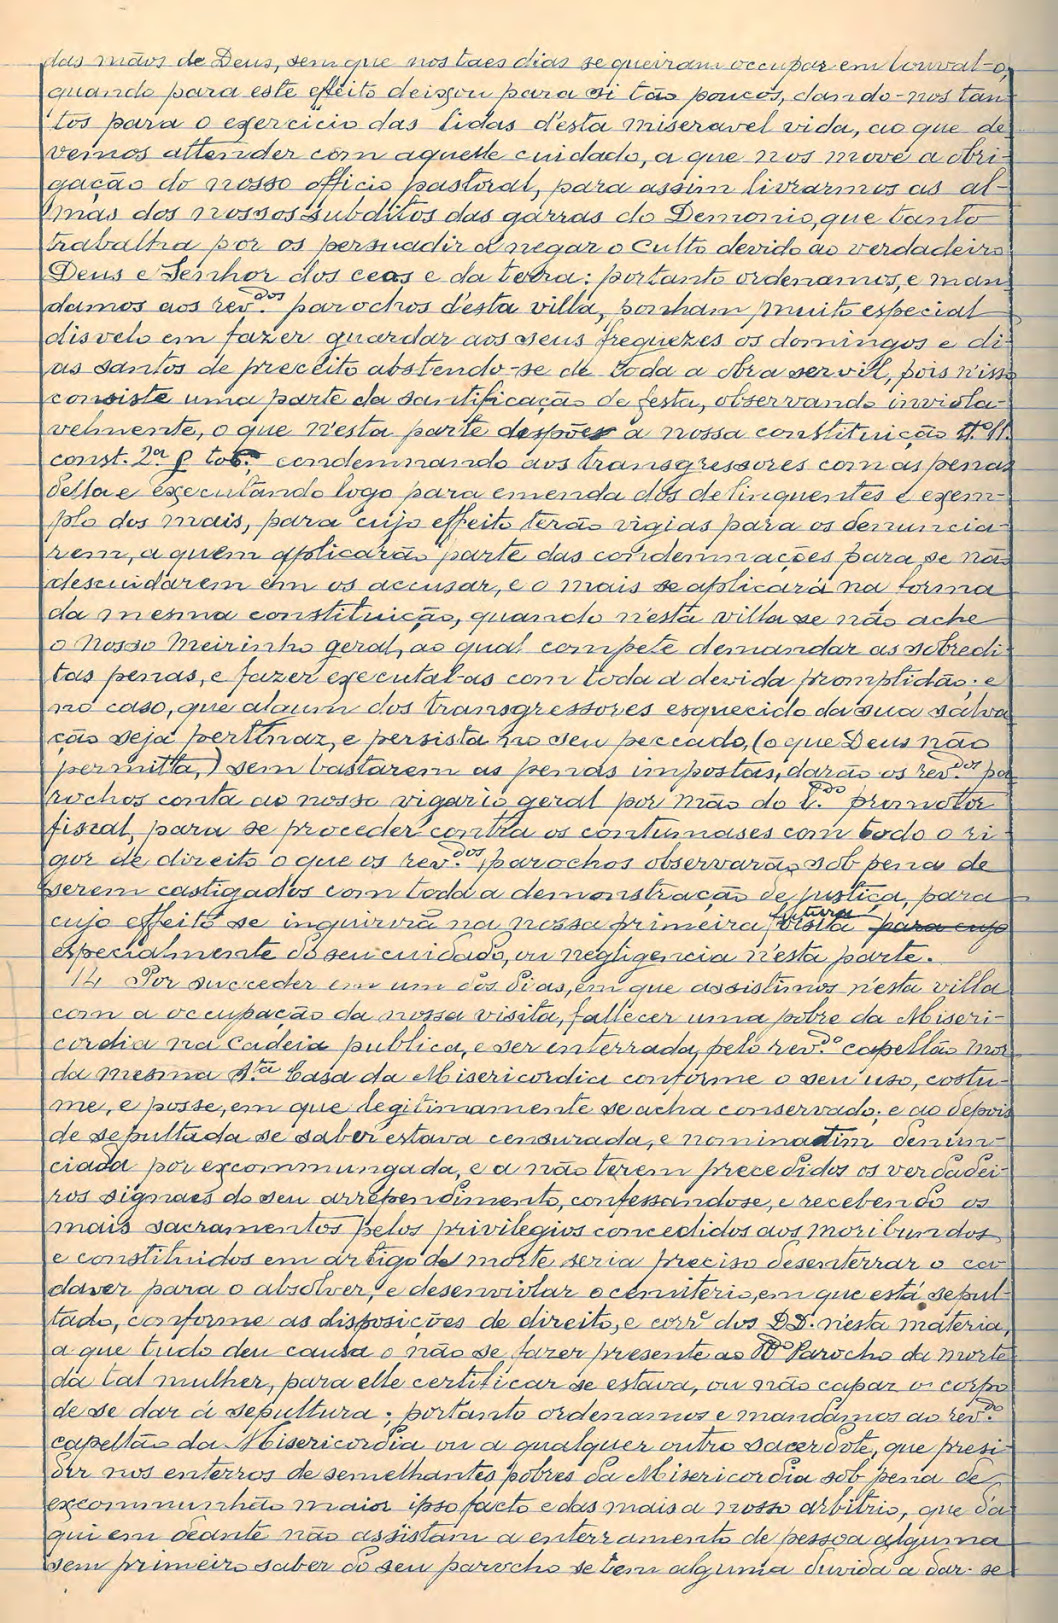 das mãos de Deus, sem que nos taes dias se queiram occupar em louval-o,
quando para este effeito deixou para si tão poucos, dando-nos tan-
tos para o exercicio das lidas d'esta miseravel vida, ao que de
vemos attender com aquelle cuidado, a que nos move a obri-
gação do nosso officio pastoral, para assim livrarmos as al-
mas dos nossos subditos das garras do Demonio, que tanto
trabalha por os persuadir a negar o culto devido ao verdadeiro
Deus e Senhor dos ceos e da terra: portanto ordenamos, e man
damos aos rev.dos parochos d'esta villa, ponham muito especial
disvelo em fazer guardar aos seus freguezes os domingos e di-
as santos de preceito abstendo-se de toda a obra servil, pois n'isso
consiste uma parte da santificação de festa, observando inviola-
velmente, o que n'esta parte despões a nossa constituição
const. 2.ª condemnando aos transgressores com as penas
della e executando logo para emenda dos delinquentes e exem-
plo dos mais, para cujo effeito terão vigias para os denuncia-
rem, a quem applicarão parte das condemnações para se não
descuidarem em os accusar, e o mais se aplicará na forma
da mesma constituição, quando n'esta villa se não ache
o nosso Meirinho geral, ao qual compete demandar as sobredi-
tas penas, e fazer executal-as com toda a devida promptidão; e
no caso, que algum dos transgressores esquecido da sua salva
ção seja pertinaz, e persista no seu peccado, (o que Deus não
permitta,) sem bastarem as penas impostas, darão os rev.dos pa
rochos conta ao nosso vigario geral por mão do promotor
fiscal, para se proceder contra os contumases com todo o ri-
gor de direito o que os rev.dos parochos observarão sob pena de
serem castigados com toda a demonstração de justiça, para
cujo effeito se inquirirá na nossa primeira futura visita para cujo
especialmente do seu cuidado, ou negligencia n'esta parte.
14 Por succeder em um dos dias, em que assistimos n'esta villa
com a occupação da nossa visita, fallecer uma pobre da Miseri-
cordia na Cadeia publica, e ser enterrada, pelo rev.do capellão mor
da mesma S.ta Casa da Misericordia conforme o seu uso, costu-
me, e posse, em que legitimamente se acha conservado; e ao depois
de sepultada se saber estava censurada, e nominatim denun-
ciada por excommungada, e a não terem precedidos os verdadei-
ros signaes do seu arrependimento, confessandose, e recebendo os
mais sacramentos pelos privilegios concedidos aos moribundos
e constituidos em artigo de morte seria preciso desenterrar o ca
daver para o absolver, e desenviolar o cemiterio, em que está sepul-
tado, conforme as disposições de direito, e corr.e dos DD. n'esta materia,
a que tudo deu causa o não se fazer presente ao R.do Parocho da morte
da tal mulher, para elle certificar se estava, ou não capaz o corpo
de se dar á sepultura; portanto ordenamos e mandamos ao rev.do
capellão da Misericordia ou a qualquer outro sacerdote, que presi-
dir nos enterros de semelhantes pobres da Misericordia sob pena de
excommunhão maior ipso facto e das mais a nosso arbitrio, que da
qui em deante não assistam a enterramento de pessoa alguma
sem primeiro saber do seu parocho se tem alguma duvida a dar-se